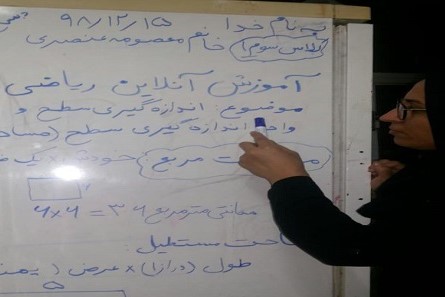 به نام خدا ۹۸/۱۲/۱۵
کلاس سوم خانم معصومه عنصری
آموزش آنلاین ریاضی
موضوع: اندازه گیری سطح و
واحد اندازه گیری سطح
مساحت مربع: خودش
۶
۶×۶ = ۳۶ سانتی متر مربع
مساحت مستطیل:
طول (درازا) × عرض
۵